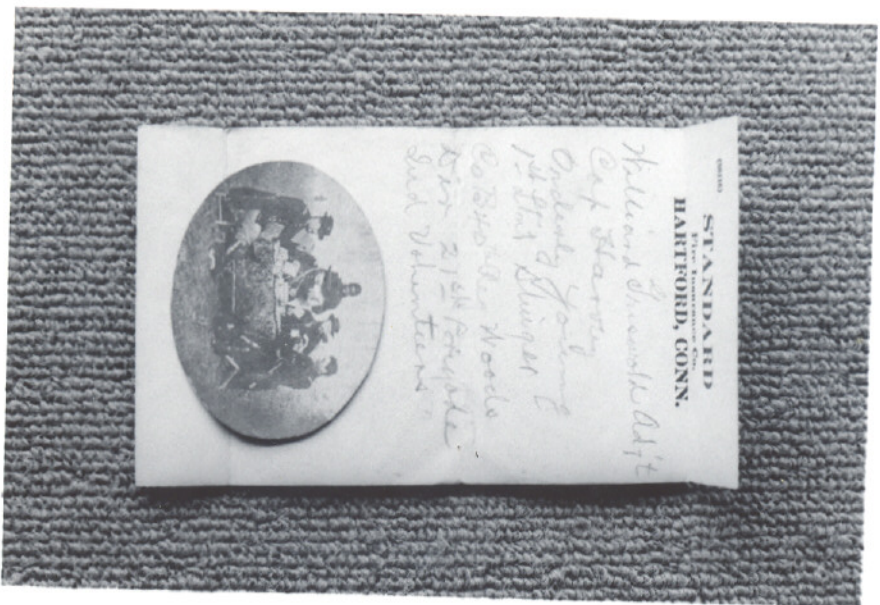 STANDARD
Fire Insurance Co.
HARTFORD, CONN.
Williard Griswolde Adj't
Cap Harvey
Orderly Young
1st Lieut Slinger
Co B 40 Woods
Div 21st Brigade
Ind Volunteers